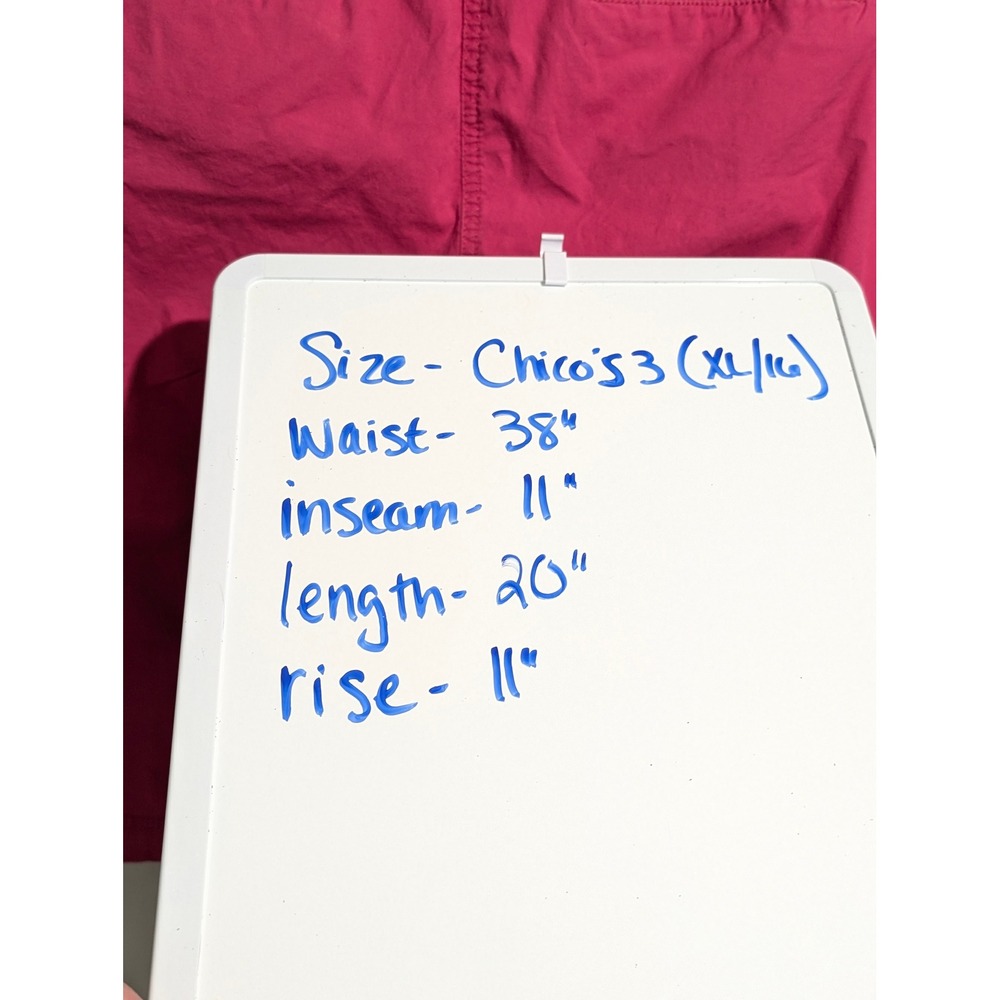 Size- Chico's 3 (XL/16)
Waist- 38"
inseam- 11"
length- 20"
rise- 11"